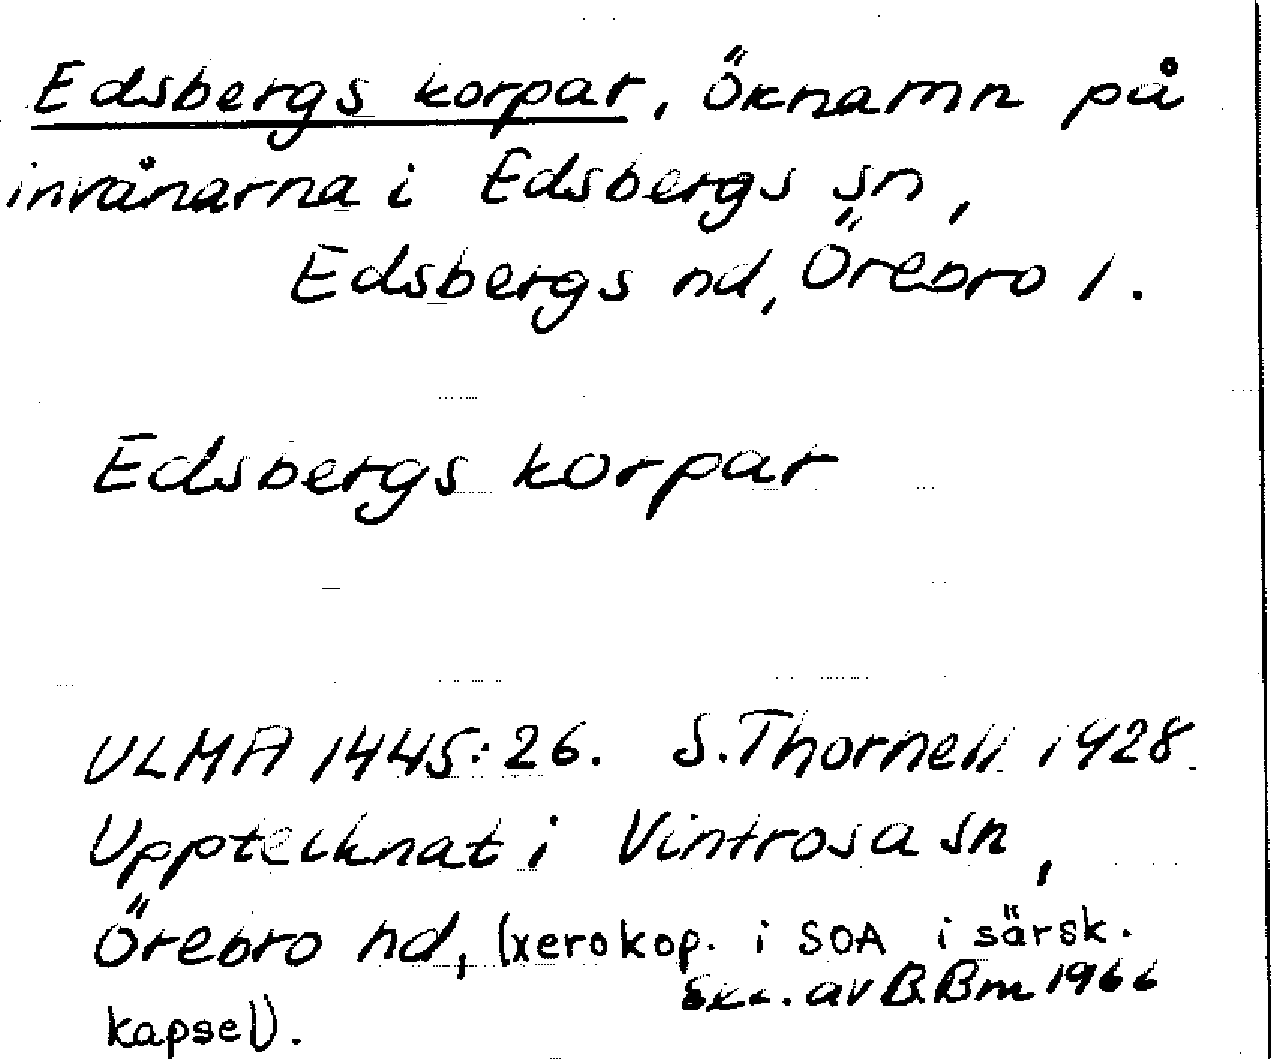 Edsbergs korpar, öknamn på
invånarna i Edsbergs sn,
Edsbergs hd, Örebro l.
Edsbergs korpar
ULMA 1445:26. S.Thornell 1928.
Upptecknat i Vintrosa sn,
Örebro hd, (xerokop. i SOA i särsk.
kapsel).
Exc. av B.Bm 1966